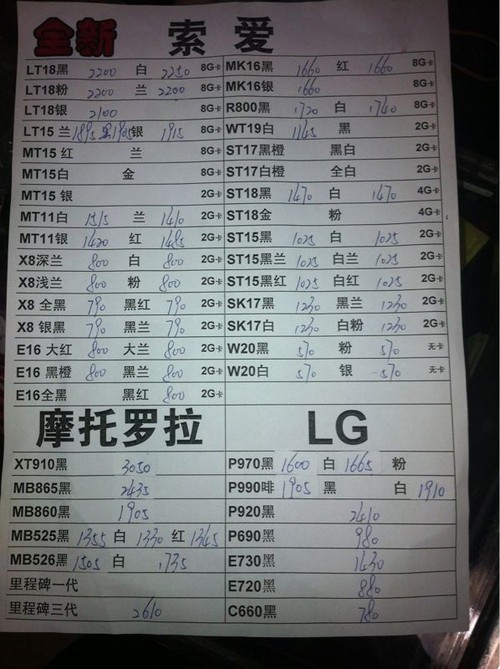 全新 索爱
LT18黑 2200 白 2250 8G卡 MK16黑 1660 红 1660 8G卡
LT18粉 2200 兰 2200 8G卡 MK16银 1660 8G卡
LT18银 2100 8G卡 R800黑 1720 白 1740 8G卡
LT15 兰 1895 黑1905 银 1915 8G卡 WT19白 1145 黑 2G卡
MT15 红 兰 8G卡 ST17黑橙 黑白 2G卡
MT15白 金 8G卡 ST17白橙 全白 2G卡
MT15 银 2G卡 ST18黑 1470 白 1470 4G卡
MT11白 兰 1410 2G卡 ST18金 粉 4G卡
MT11银 1420 红 1485 2G卡 ST15黑 1025 白 1025 2G卡
X8深兰 800 白 800 2G卡 ST15黑兰 1025 白兰 1025 2G卡
X8浅兰 800 粉 800 2G卡 ST15黑红 1025 白红 1025 2G卡
X8 全黑 790 黑红 790 2G卡 SK17黑 1230 黑兰 1230 2G卡
X8 银黑 790 黑兰 790 2G卡 SK17白 1230 白粉 1230 2G卡
E16 大红 800 大兰 800 2G卡 W20黑 570 粉 570 无卡
E16 黑橙 800 黑兰 800 2G卡 W20白 570 银 570 无卡
E16全黑 黑红 800 2G卡
摩托罗拉 LG
XT910黑 3050 P970黑 1600 白 1665 粉
MB865黑 2435 P990啡 1905 黑 白 1910
MB860黑 1905 P920黑 2410
MB525黑 1355 白 1330 红 1345 P690黑 980
MB526黑 1505 白 1735 E730黑 1430
里程碑一代 E720黑 880
里程碑三代 2610 C660黑 780